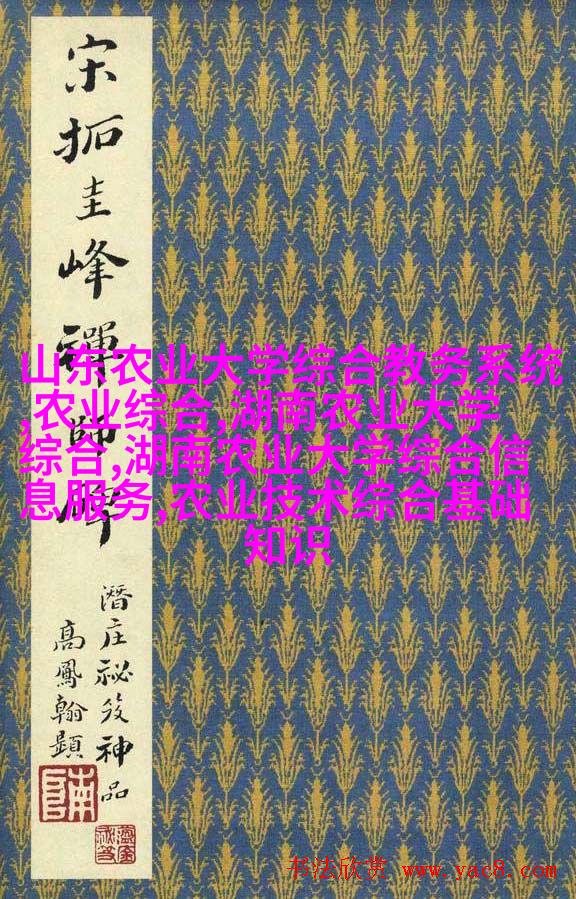 宋拓圭峰禪師碑
潛庄祕笈神品
高鳳翰題
南阜
山东农业大学综合教务系统
,农业综合,湖南农业大学
综合,湖南农业大学综合信
息服务,农业技术综合基础
知识
书法欣赏 www.yac8.com